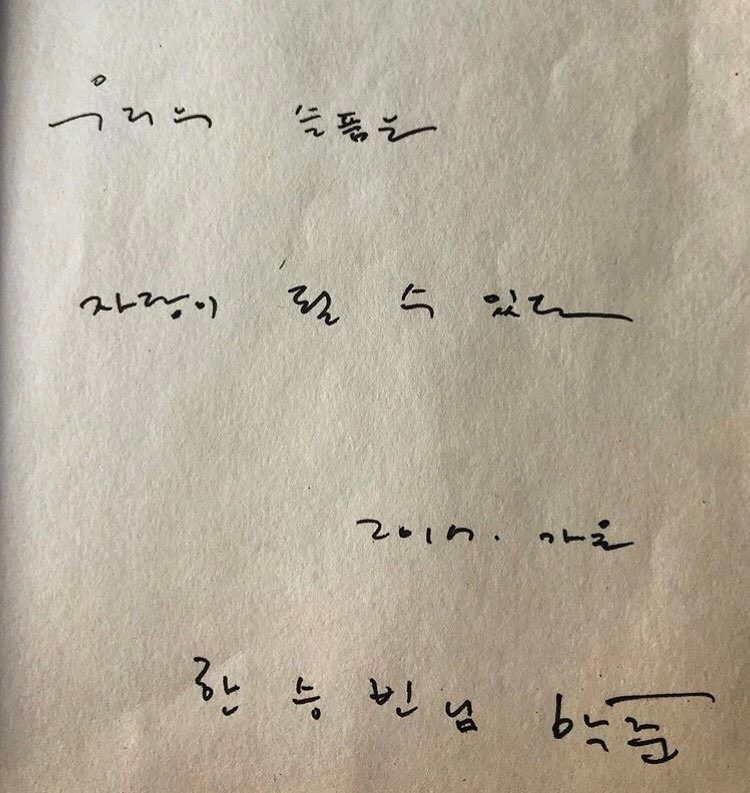 우리의 슬픔은
자랑이 될 수 있다
2017. 가을
한 승 빈 님 박준